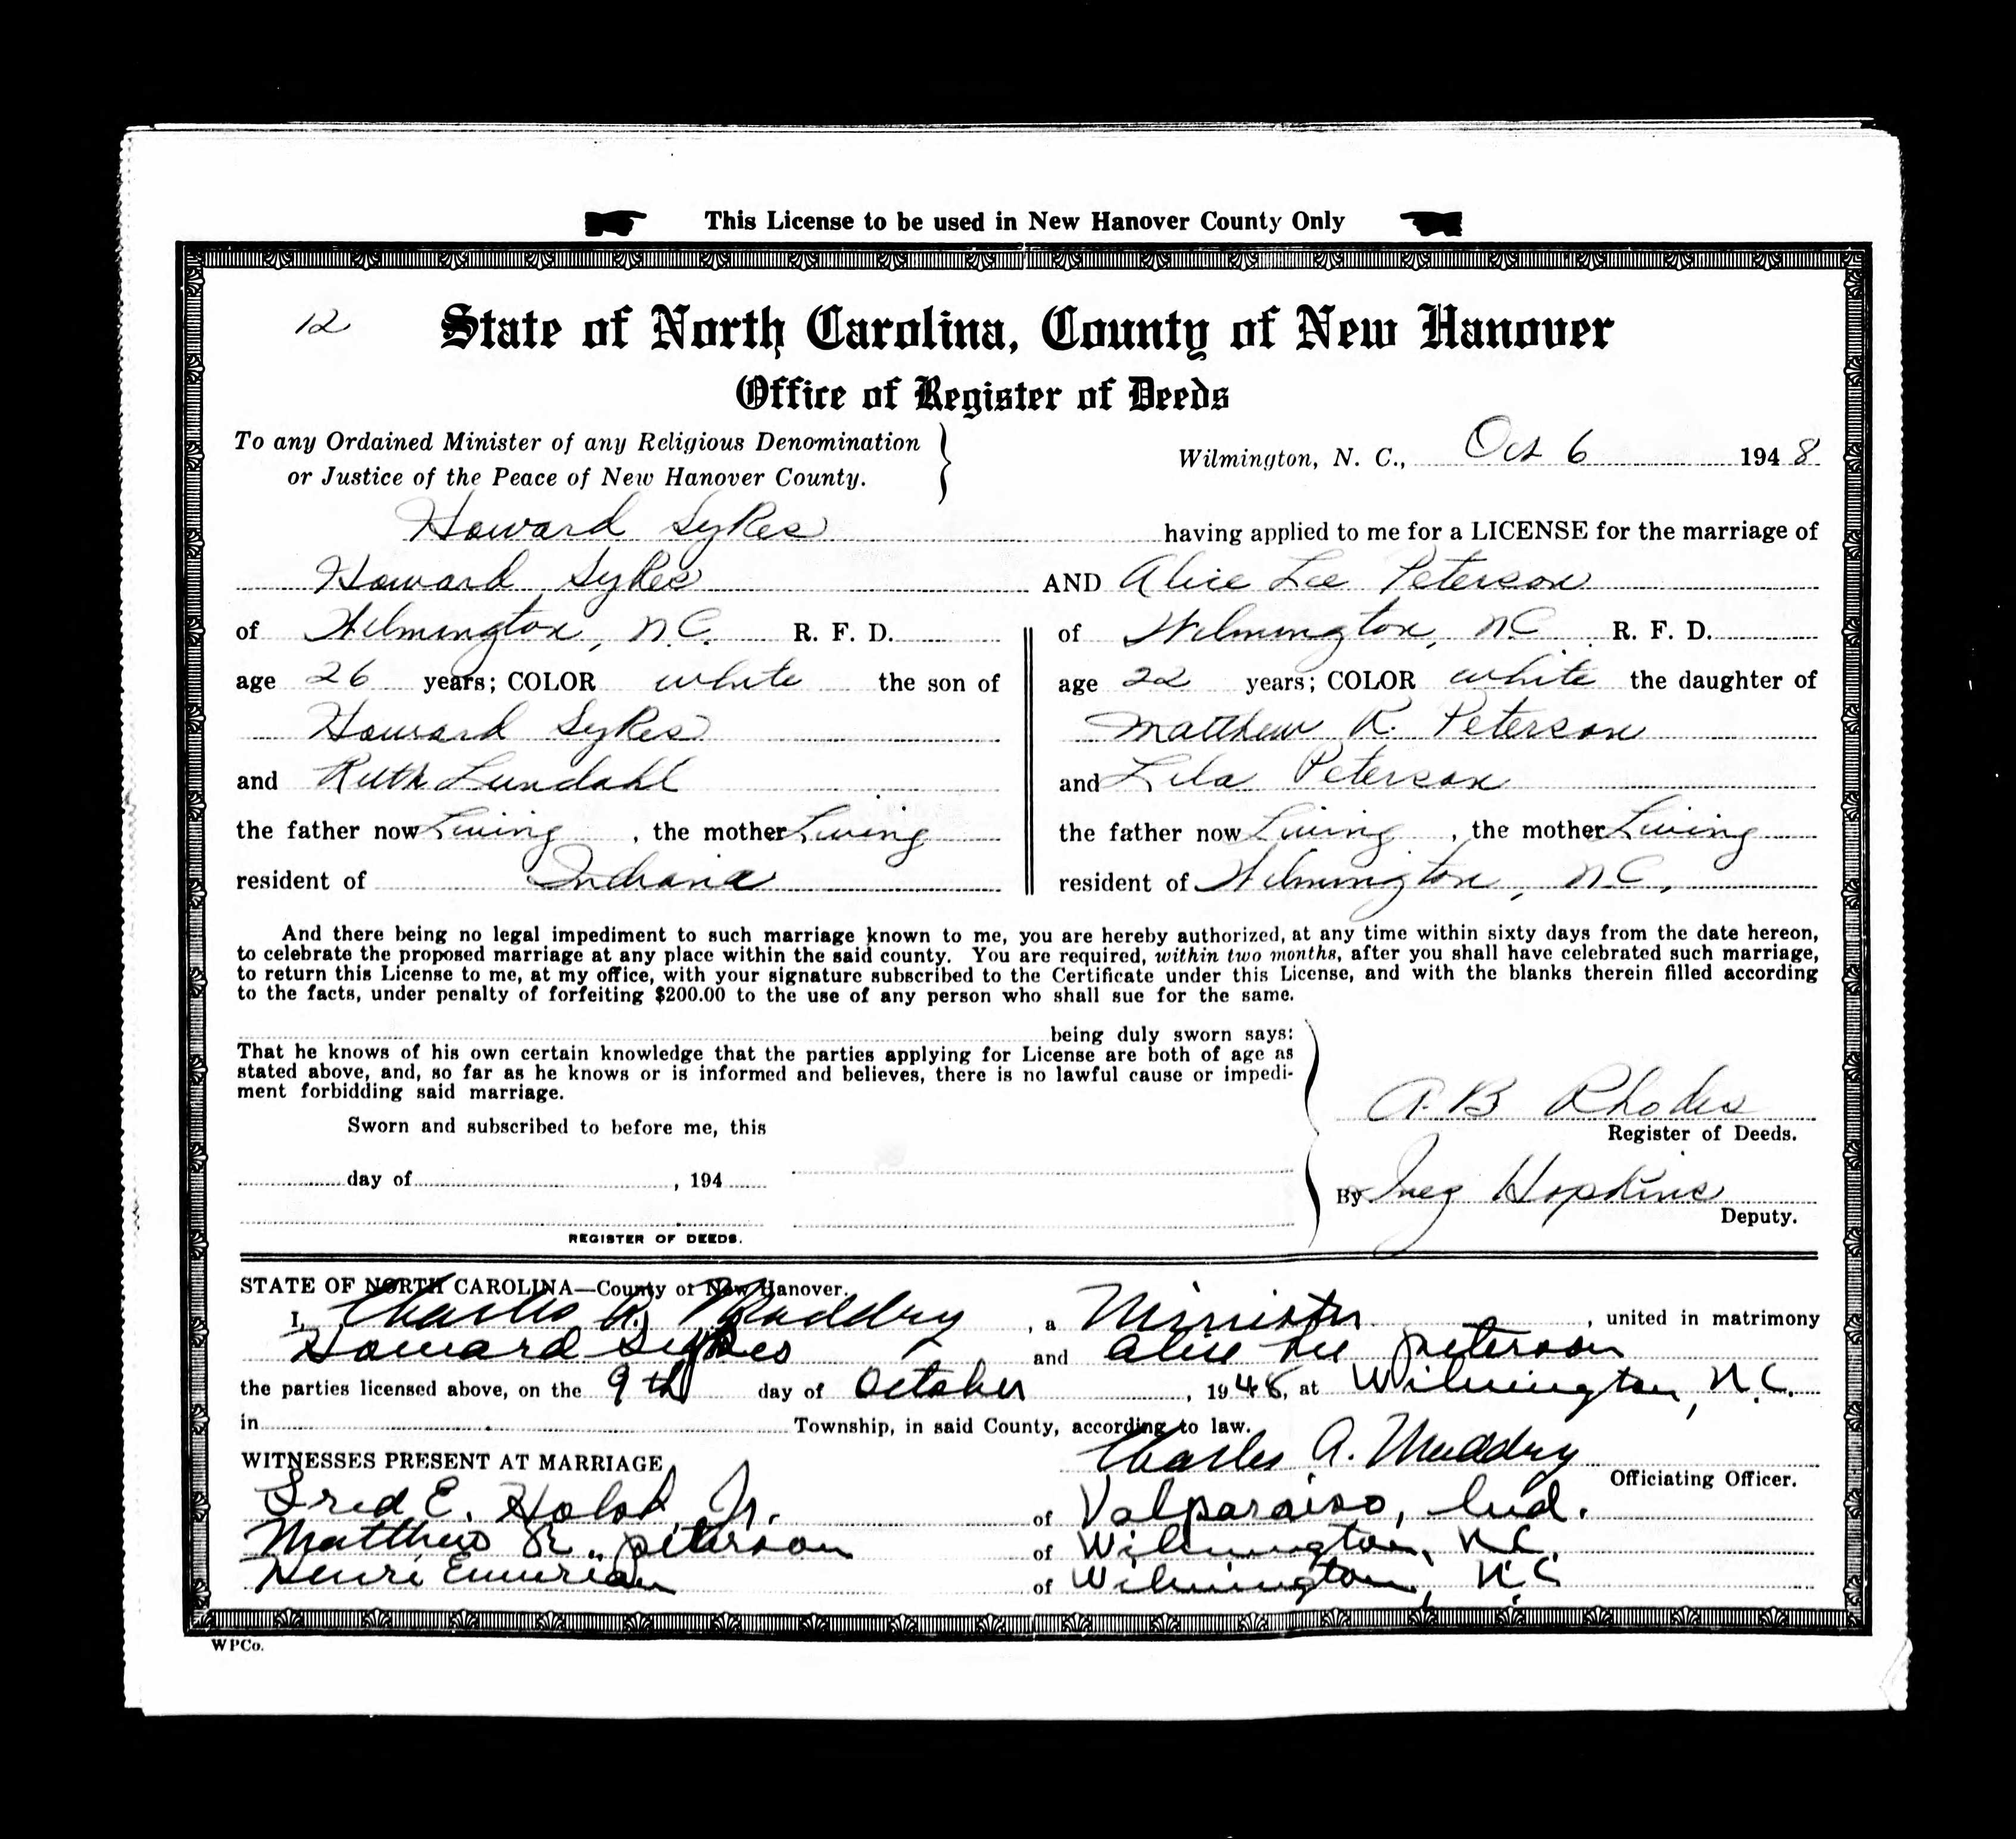 This License to be used in New Hanover County Only
12 State of North Carolina, County of New Hanover
Office of Register of Deeds
To any Ordained Minister of any Religious Denomination
or Justice of the Peace of New Hanover County.
Wilmington, N. C., Oct 6 1948
Howard Sykes having applied to me for a LICENSE for the marriage of
Howard Sykes AND Alice Lee Peterson
of Wilmington, N.C. R. F. D. of Wilmington, N.C. R. F. D.
age 26 years; COLOR white the son of age 22 years; COLOR white the daughter of
Howard Sykes Matthew R. Peterson
and Ruth Lundahl and Lila Peterson
the father now Living, the mother Living the father now Living, the mother Living
resident of Indiana resident of Wilmington, N.C.
And there being no legal impediment to such marriage known to me, you are hereby authorized, at any time within sixty days from the date hereon,
to celebrate the proposed marriage at any place within the said county. You are required, within two months, after you shall have celebrated such marriage,
to return this License to me, at my office, with your signature subscribed to the Certificate under this License, and with the blanks therein filled according
to the facts, under penalty of forfeiting $200.00 to the use of any person who shall sue for the same.
being duly sworn says:
That he knows of his own certain knowledge that the parties applying for License are both of age as
stated above, and, so far as he knows or is informed and believes, there is no lawful cause or impedi-
ment forbidding said marriage.
Sworn and subscribed to before me, this
day of , 194
REGISTER OF DEEDS.
A. B Rhodes
Register of Deeds.
By Hopkins
Deputy.
STATE OF NORTH CAROLINA—County of New Hanover.
I, Charles A. Maddry, a Minister, united in matrimony
Howard Sykes and Alice Lee Peterson
the parties licensed above, on the 9th day of October, 1948, at Wilmington, N.C.
in Township, in said County, according to law.
Charles A. Maddry
WITNESSES PRESENT AT MARRIAGE
Officiating Officer.
Fred E. Jr. of Valparaiso, Ind.
Matthew R. Peterson of Wilmington, N.C.
Henri Emurian of Wilmington, N.C
WPCo.